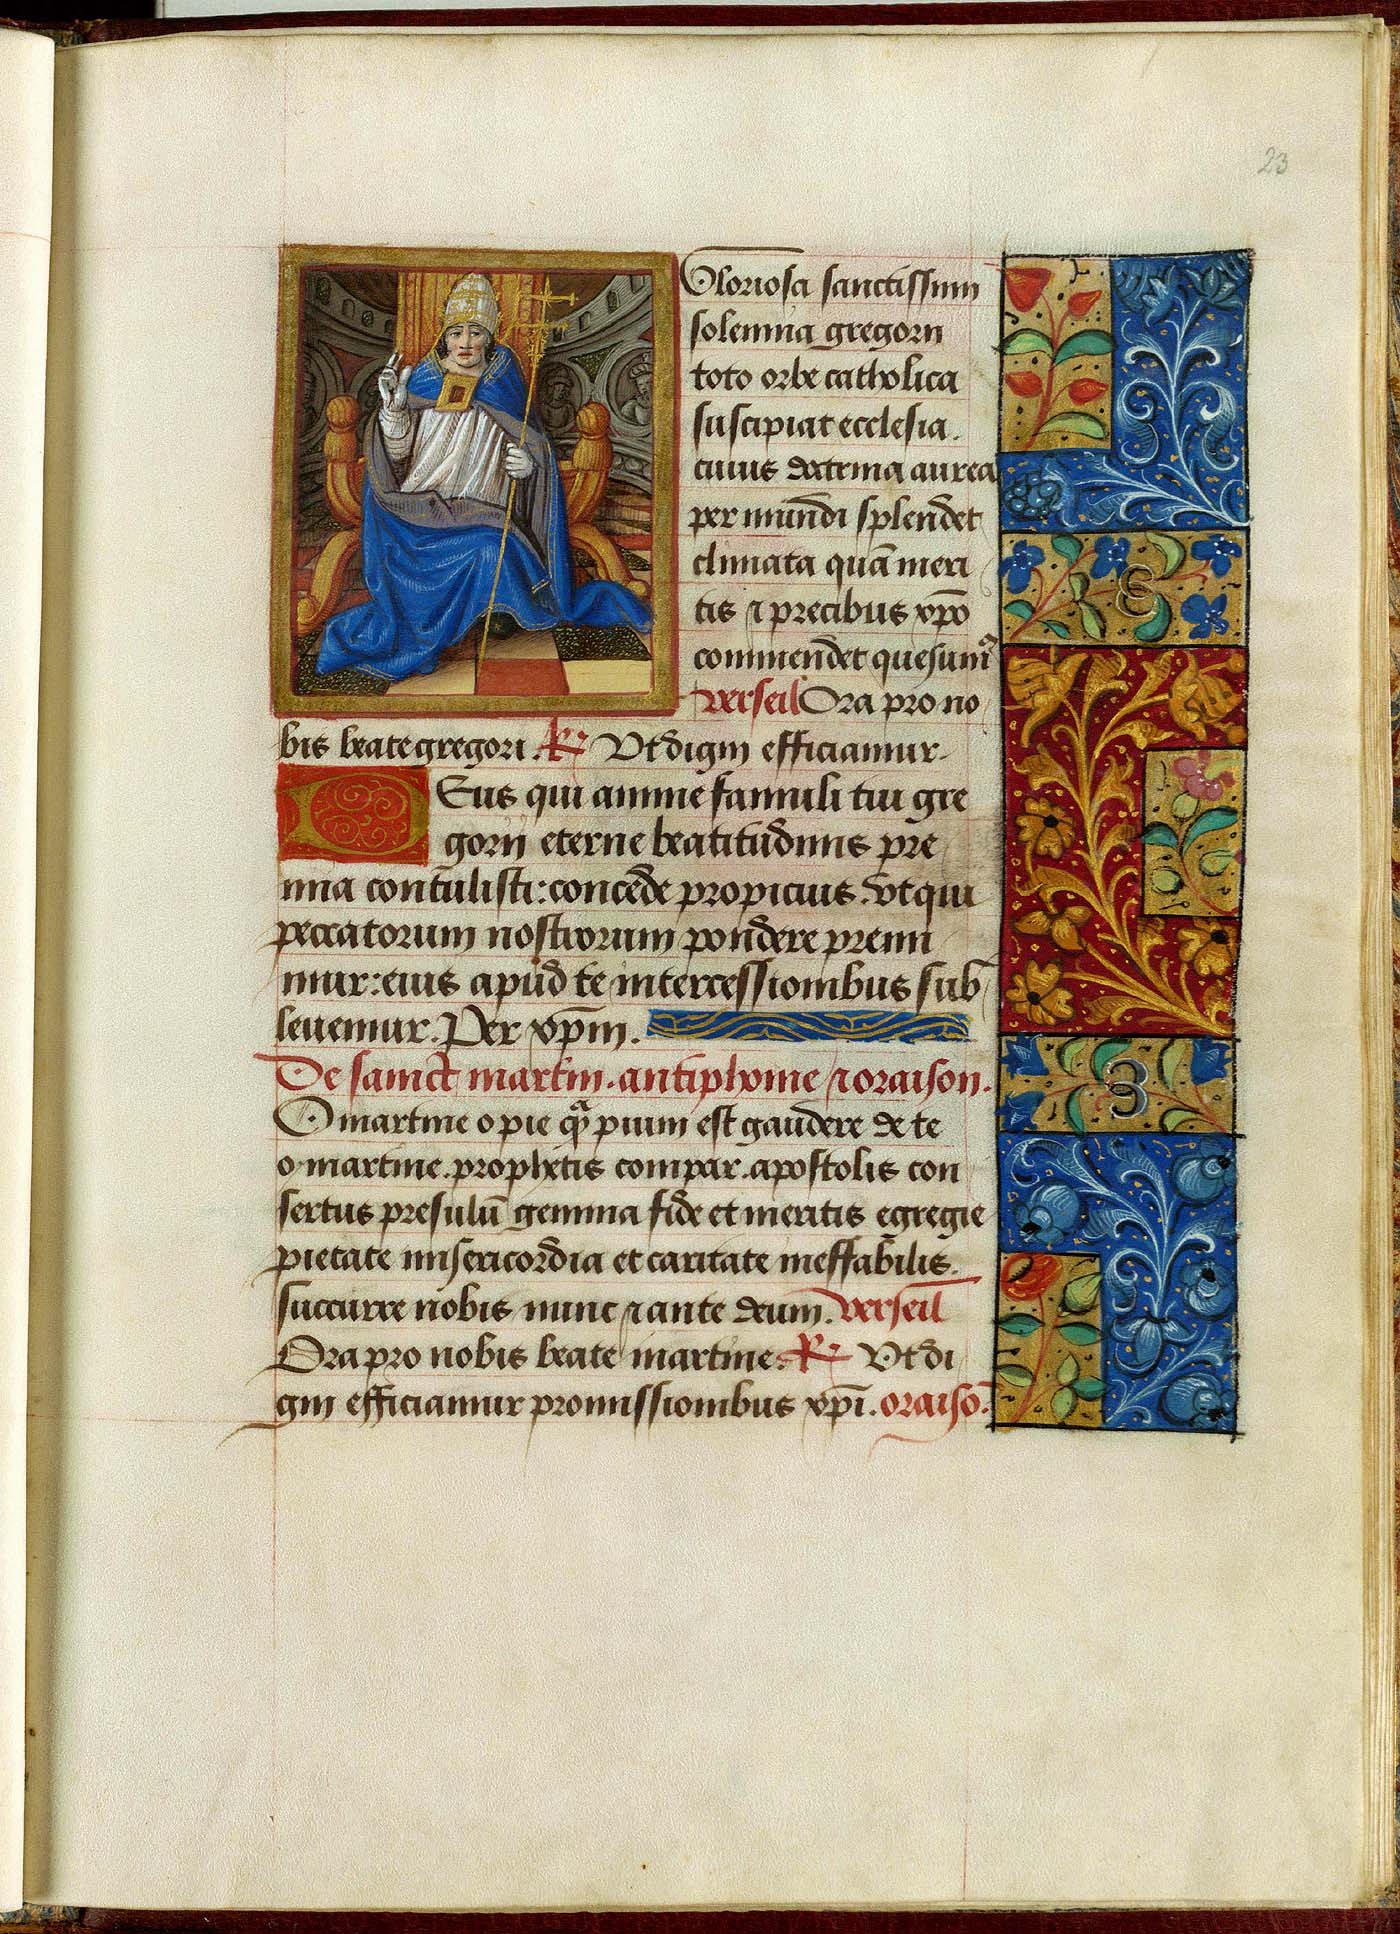 23
Gloriosa sanctissimi
solemnia gregorii
toto orbe catholica
suscipiat ecclesia.
cuius doctrina aurea
per mundi splendet
climata quā meri
tis ⁊ precibus xp̄o
commendet quesumꝰ
verseil Ora pro no
bis beate gregori. R⁊ Vt digni efficiamur.
DEus qui anime famuli tui gre
gorii eterne beatitudinis pre
mia contulisti: concede propicius. vt qui
peccatorum nostrorum pondere premi
mur: eius apud te intercessionibus sub
leuemur. Per xp̄m.
De sainct martin. antiphoine ⁊ oraison.
O martine o pie qͣ pium est gaudere de te
o martine. prophetis compar. apostolis con
sertus presulū gemma fide et meritis egregie
pietate misericordia et caritate ineffabilis.
succurre nobis nunc ⁊ ante deum. verseil
Ora pro nobis beate martine. R⁊ Vt di
gni efficiamur promissionibus xp̄i. oraisō.